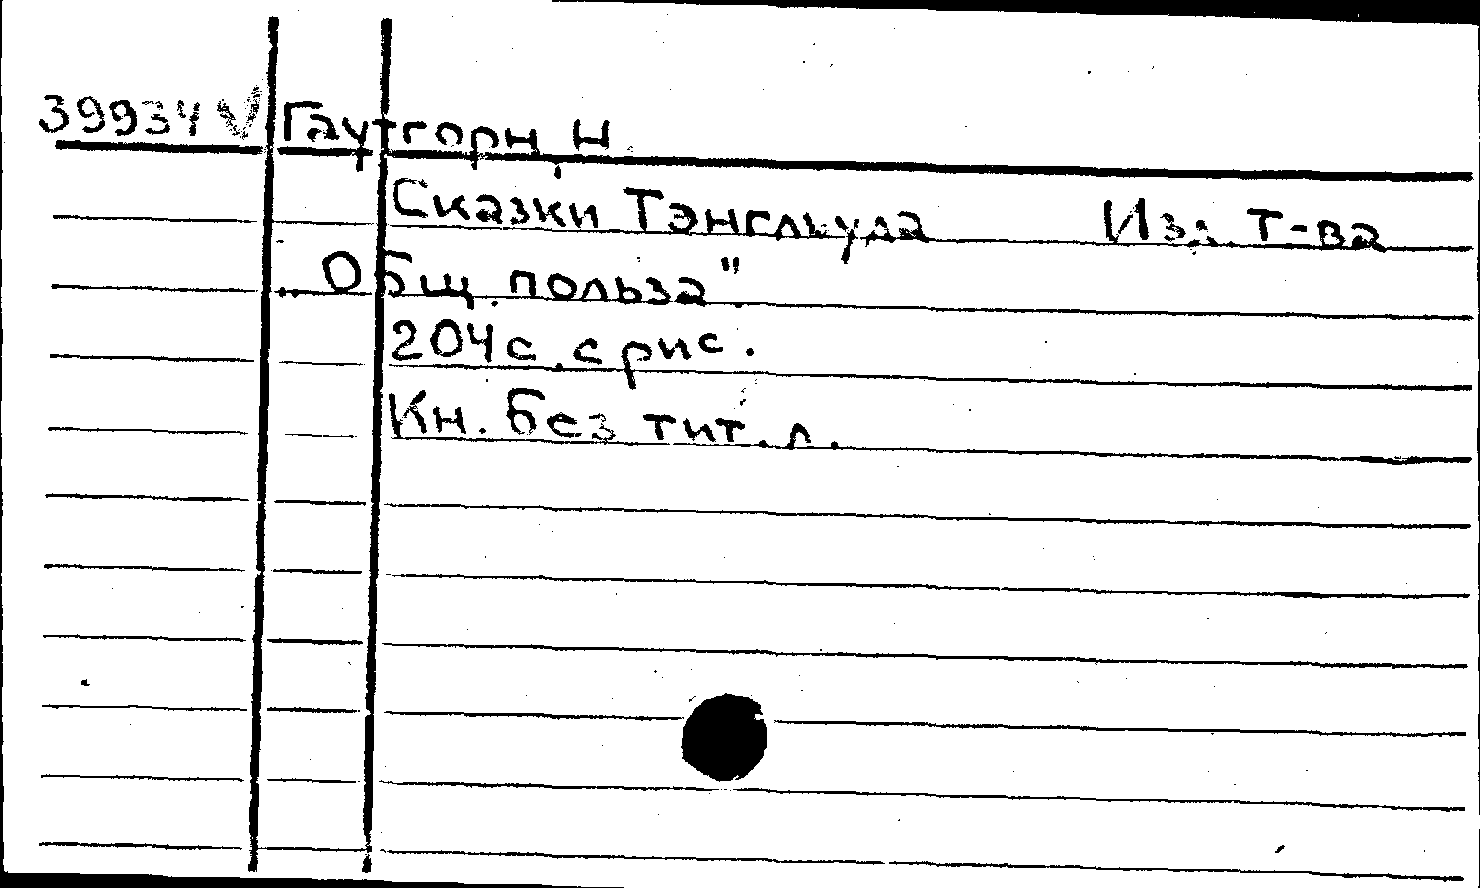 39934 V Гаутгорн, Н.
Сказки Тэнгльуда Изд. т-ва
„Общ. польза".
204 с. с рис.
Кн. без тит. л.